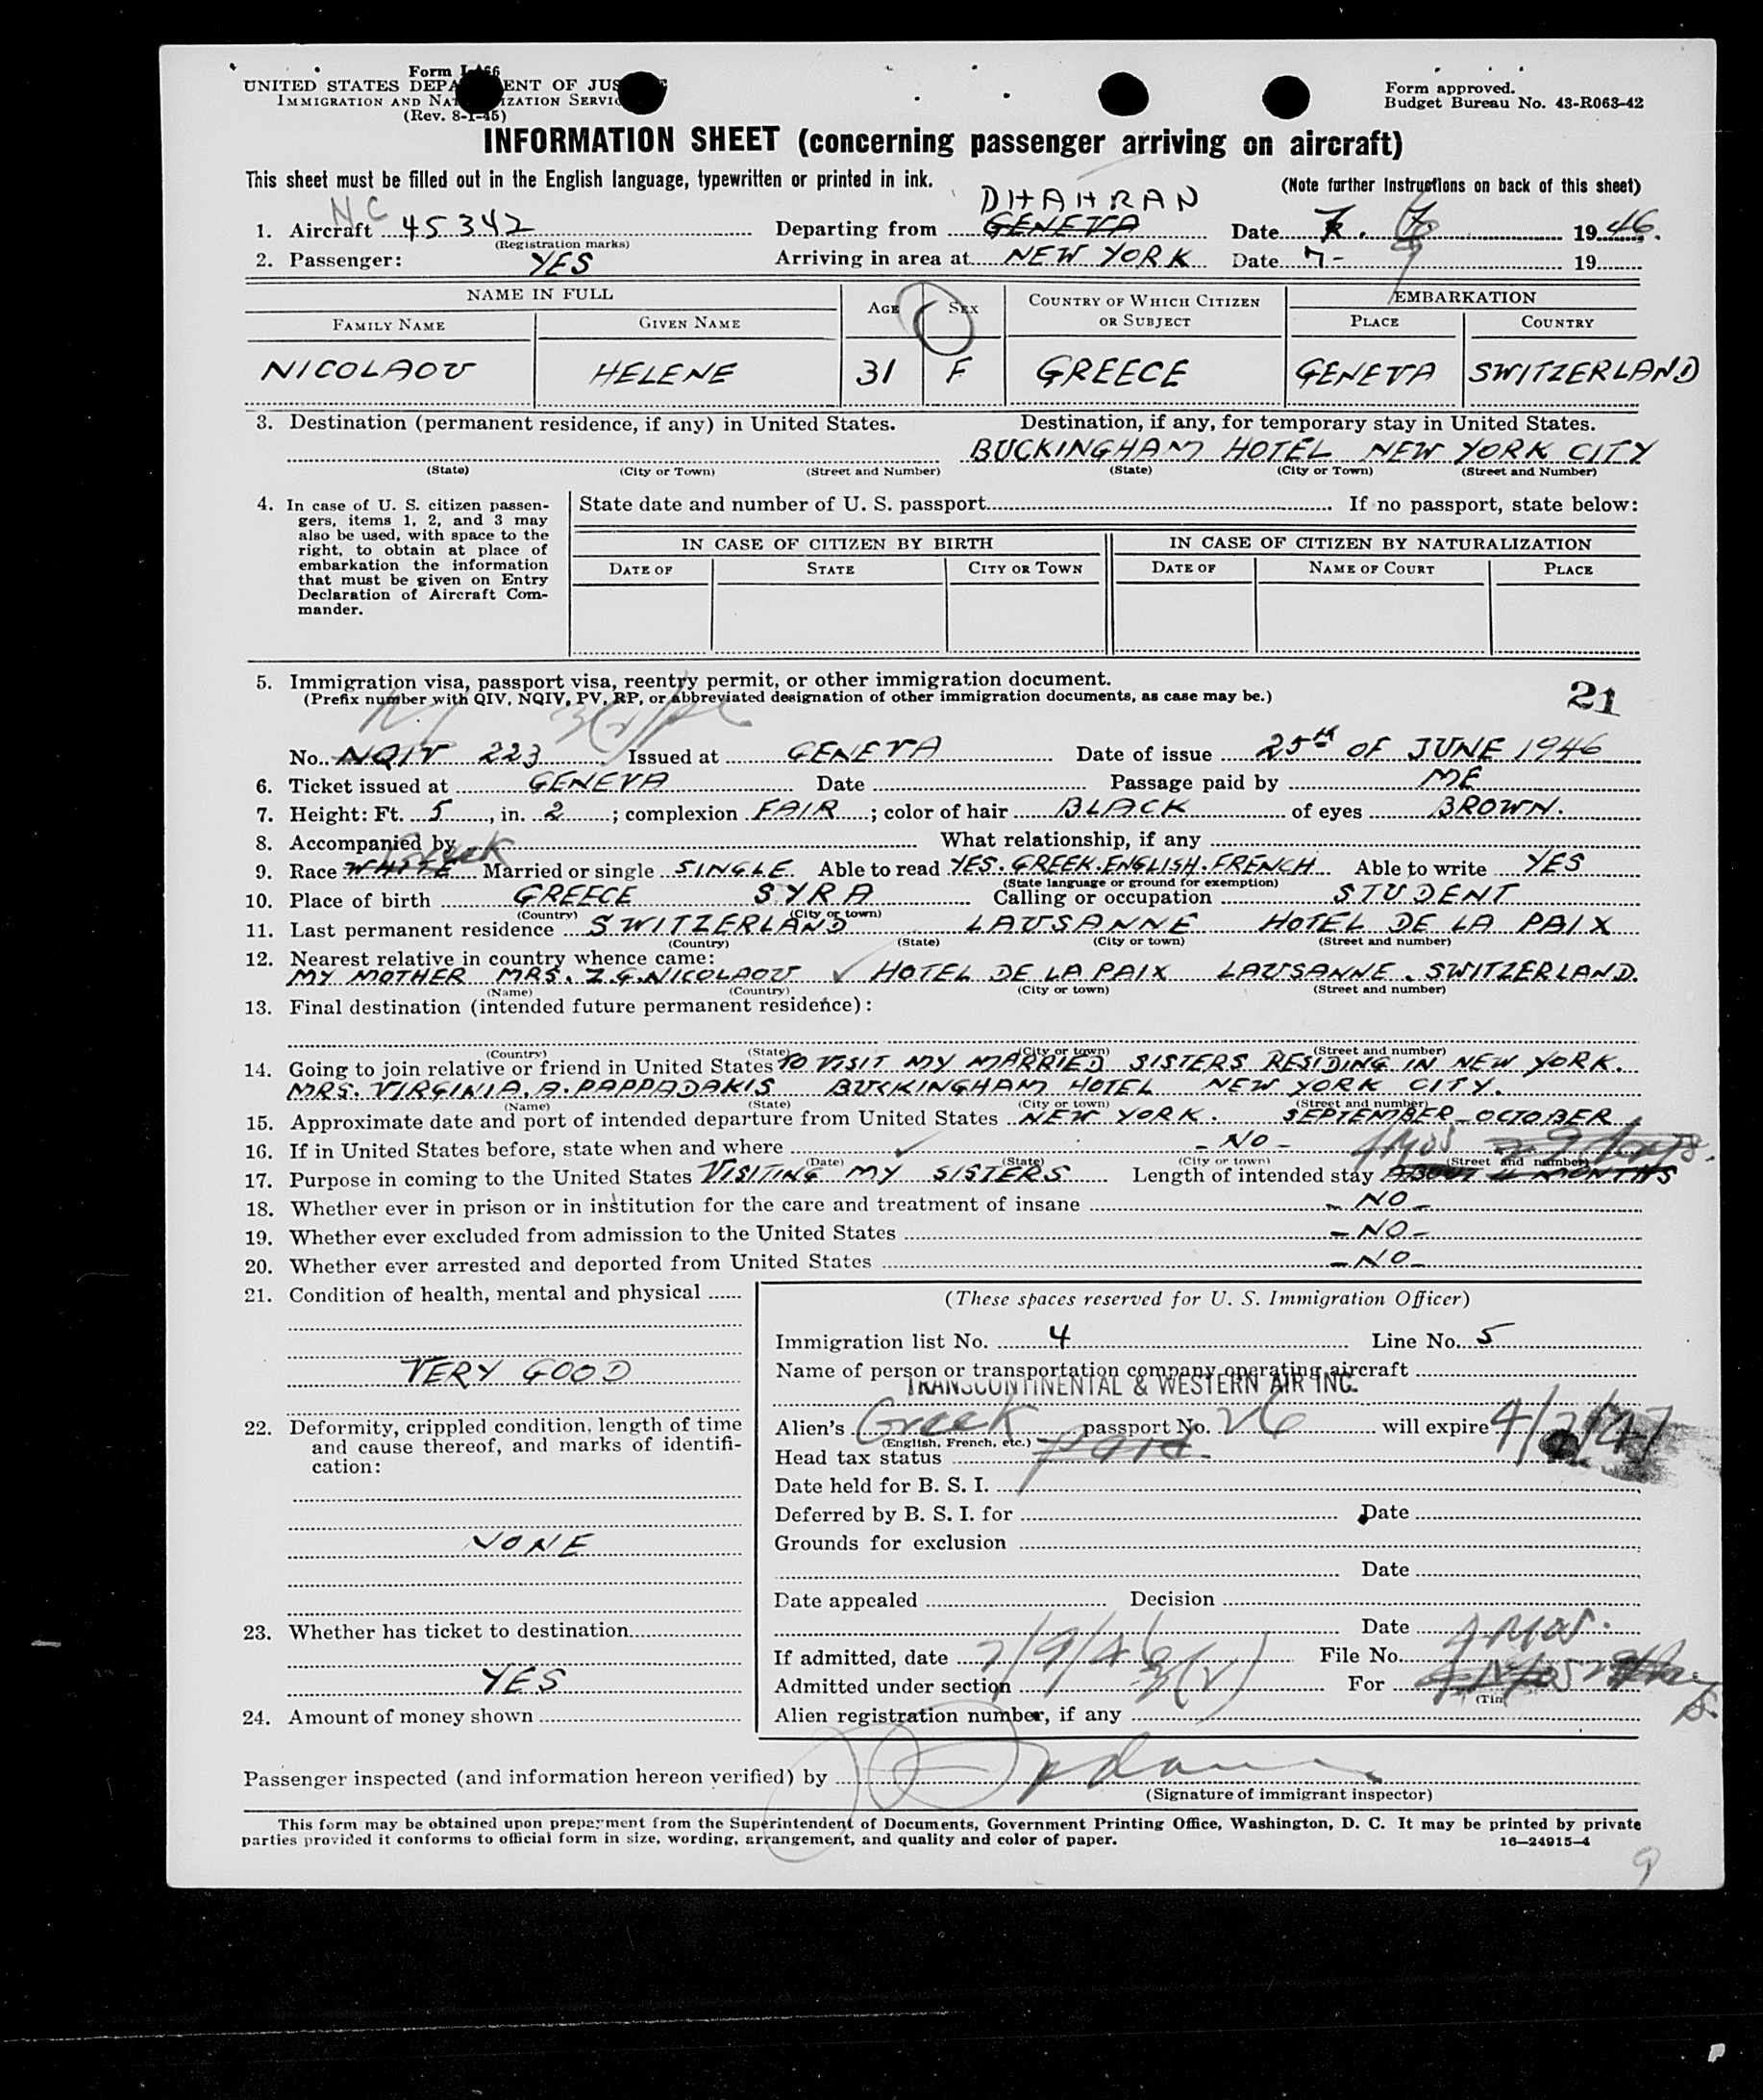 Form I-466
UNITED STATES DEPARTMENT OF JUSTICE
IMMIGRATION AND NATURALIZATION SERVICE
(Rev. 8-1-45)
Form approved.
Budget Bureau No. 43-R063-42
INFORMATION SHEET (concerning passenger arriving on aircraft)
This sheet must be filled out in the English language, typewritten or printed in ink.
(Note further Instructions on back of this sheet)
DHAHRAN
1. Aircraft NC 45342 Departing from GENEVA Date 7. 1946.
(Registration marks)
2. Passenger: YES Arriving in area at NEW YORK Date 7-9 19
NAME IN FULL AGE SEX COUNTRY OF WHICH CITIZEN OR SUBJECT EMBARKATION
FAMILY NAME GIVEN NAME PLACE COUNTRY
NICOLAOU HELENE 31 F GREECE GENEVA SWITZERLAND
3. Destination (permanent residence, if any) in United States. Destination, if any, for temporary stay in United States.
BUCKINGHAM HOTEL NEW YORK CITY
(State) (City or Town) (Street and Number) (State) (City or Town) (Street and Number)
4. In case of U. S. citizen passen-
gers, items 1, 2, and 3 may
also be used, with space to the
right, to obtain at place of
embarkation the information
that must be given on Entry
Declaration of Aircraft Com-
mander.
State date and number of U. S. passport If no passport, state below:
IN CASE OF CITIZEN BY BIRTH IN CASE OF CITIZEN BY NATURALIZATION
DATE OF STATE CITY OR TOWN DATE OF NAME OF COURT PLACE
5. Immigration visa, passport visa, reentry permit, or other immigration document.
(Prefix number with QIV, NQIV, PV, RP, or abbreviated designation of other immigration documents, as case may be.)
21
No. NQIV 223 Issued at GENEVA Date of issue 25th OF JUNE 1946
6. Ticket issued at GENEVA Date Passage paid by ME
7. Height: Ft. 5, in. 2; complexion FAIR; color of hair BLACK of eyes BROWN.
8. Accompanied by What relationship, if any
Greek
9. Race WHITE Married or single SINGLE. Able to read YES. GREEK. ENGLISH. FRENCH Able to write YES
(State language or ground for exemption)
10. Place of birth GREECE SYRA Calling or occupation STUDENT
(Country) (City or town)
11. Last permanent residence SWITZERLAND LAUSANNE HOTEL DE LA PAIX
(Country) (State) (City or town) (Street and number)
12. Nearest relative in country whence came:
MY MOTHER MRS. Z.G. NICOLAOU ✓ HOTEL DE LA PAIX LAUSANNE. SWITZERLAND.
(Name) (Country) (City or town) (Street and number)
13. Final destination (intended future permanent residence):
(Country) (State) (City or town) (Street and number)
14. Going to join relative or friend in United States TO VISIT MY MARRIED SISTERS RESIDING IN NEW YORK.
MRS. VIRGINIA. A. PAPPADAKIS BUCKINGHAM HOTEL NEW YORK CITY.
(Name) (State) (City or town) (Street and number)
15. Approximate date and port of intended departure from United States NEW YORK. SEPTEMBER-OCTOBER
16. If in United States before, state when and where ✓ - NO -
(Date) (State) (City or town) (Street and number)
17. Purpose in coming to the United States VISITING MY SISTERS Length of intended stay ABOUT 4 MONTHS
18. Whether ever in prison or in institution for the care and treatment of insane - NO -
19. Whether ever excluded from admission to the United States - NO -
20. Whether ever arrested and deported from United States - NO -
21. Condition of health, mental and physical
VERY GOOD
22. Deformity, crippled condition, length of time
and cause thereof, and marks of identifi-
cation:
NONE
23. Whether has ticket to destination
YES
24. Amount of money shown
(These spaces reserved for U. S. Immigration Officer)
Immigration list No. 4 Line No. 5
Name of person or transportation company operating aircraft
TRANSCONTINENTAL & WESTERN AIR INC.
Alien's Greek passport No. 26 will expire 4/2/47
(English, French, etc.)
Head tax status paid
Date held for B. S. I.
Deferred by B. S. I. for Date
Grounds for exclusion
Date
Date appealed Decision
Date
If admitted, date 7/9/46 File No.
Admitted under section 3(2) For
Alien registration number, if any
Passenger inspected (and information hereon verified) by
(Signature of immigrant inspector)
This form may be obtained upon prepayment from the Superintendent of Documents, Government Printing Office, Washington, D. C. It may be printed by private
parties provided it conforms to official form in size, wording, arrangement, and quality and color of paper.
16—24915-4
9